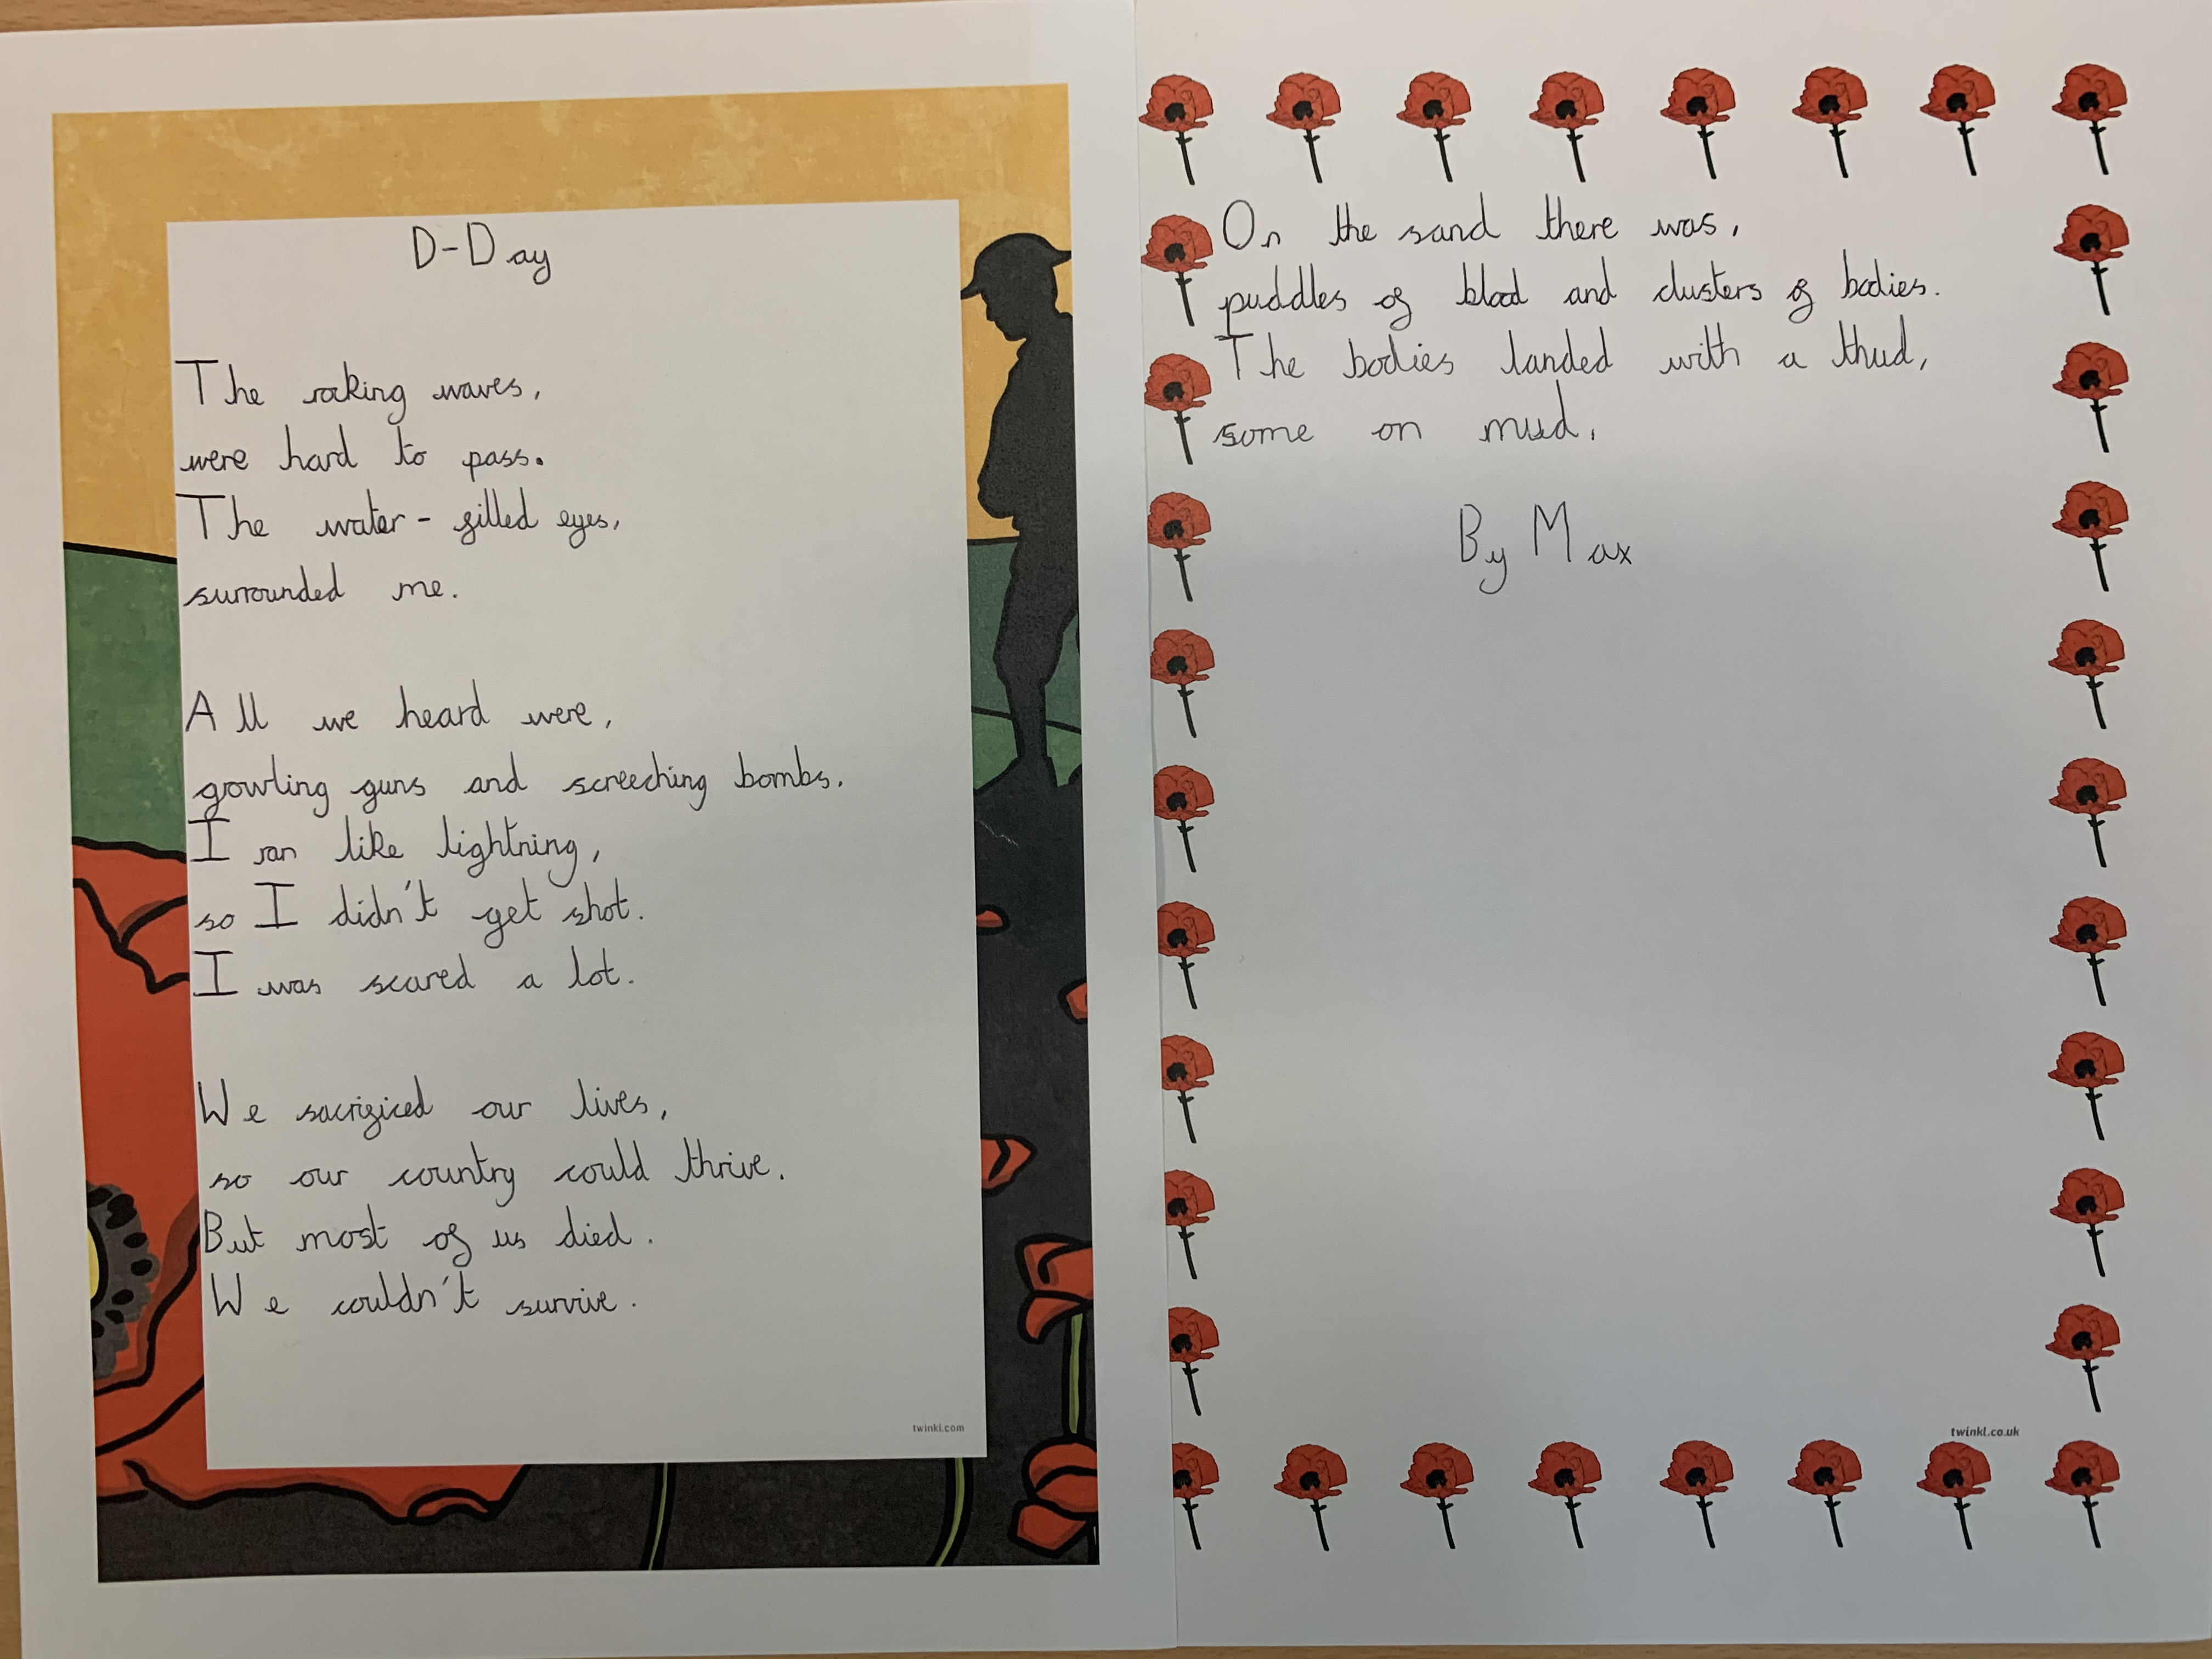 D-Day
The rocking waves,
were hard to pass.
The water-filled eyes,
surrounded me.
All we heard were,
growling guns and screeching bombs.
I ran like lightning,
so I didn't get shot.
I was scared a lot.
We sacrificed our lives,
so our country could thrive.
But most of us died.
We couldn't survive.
twinkl.com
On the sand there was,
puddles of blood and clusters of bodies.
The bodies landed with a thud,
some on mud.
By Max
twinkl.co.uk